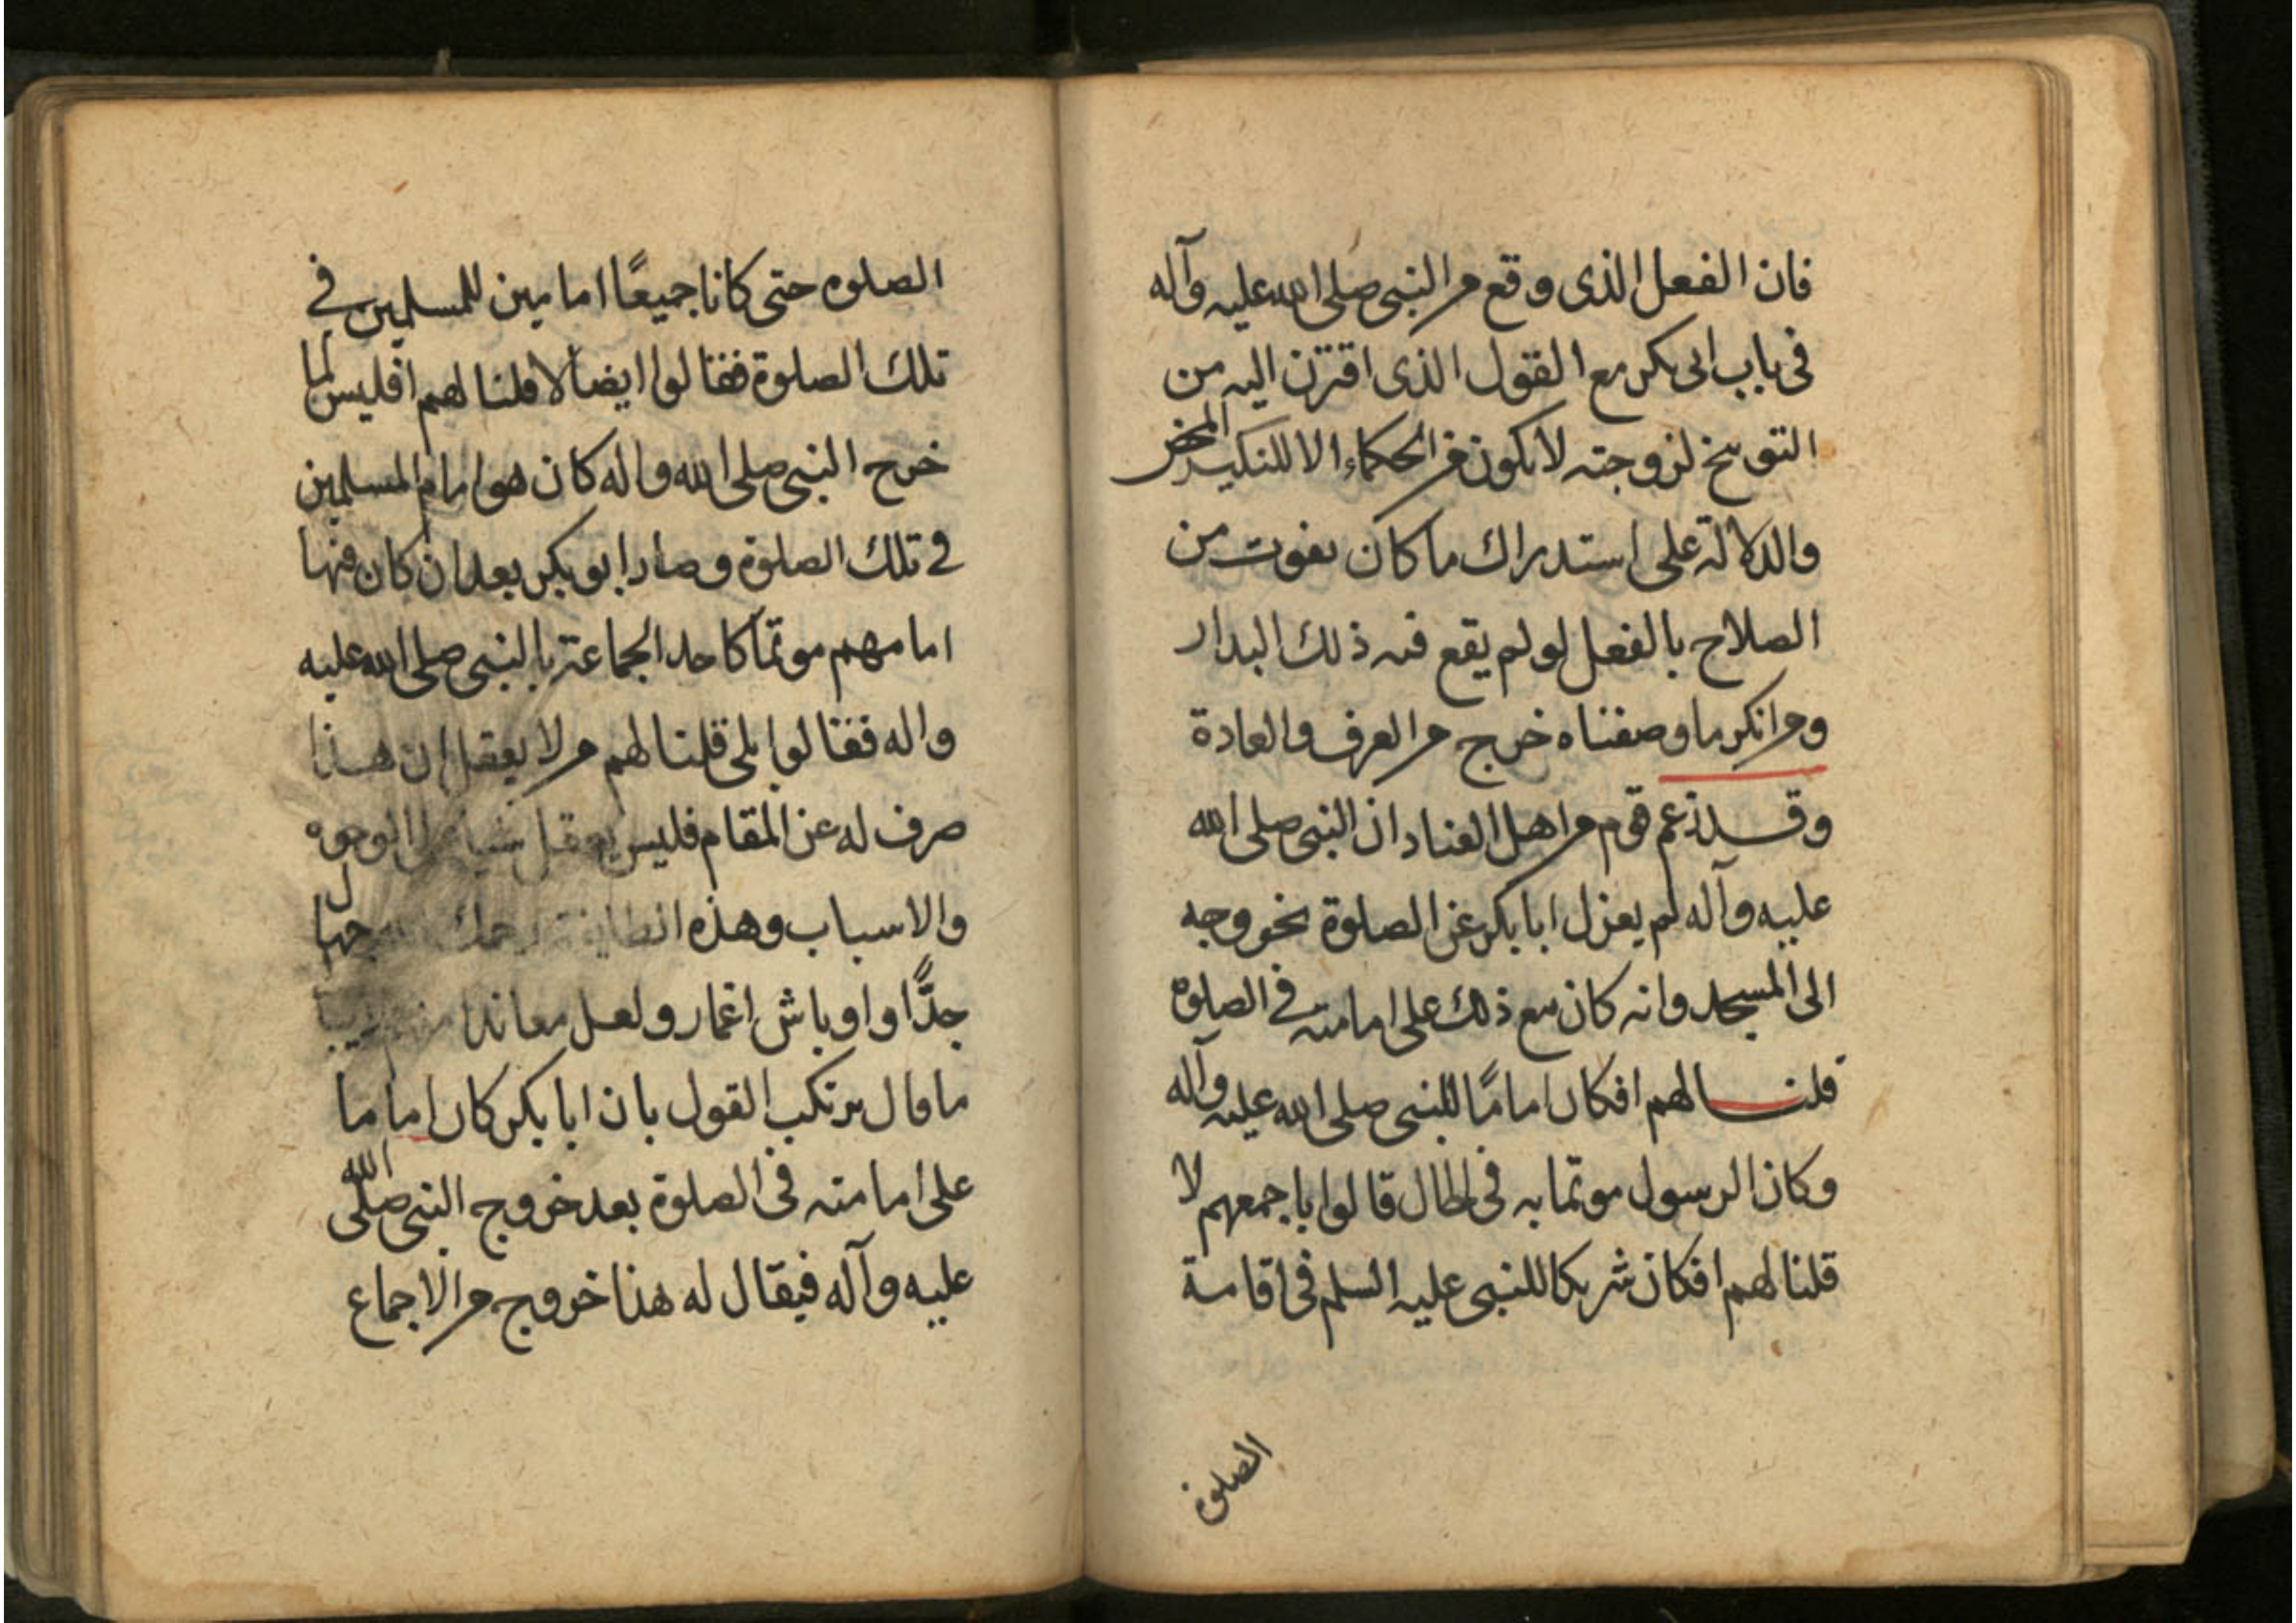 فان الفعل الذى وقع من النبى صلى الله عليه وآله
فى باب ابى بكر مع القول الذى اقترن اليه من
التوبيخ لزوجته لا يكون من الحكماء الا للنكير المحض
والدلالة على استدراك ما كان يفوت من
الصلاح بالفعل لو لم يقع فيه ذلك البدار
ومن انكر ما وصفناه خرج من العرف والعادة
وقد زعم قوم من اهل العناد ان النبى صلى الله
عليه وآله لم يعزل ابا بكر عن الصلوة بخروجه
الى المسجد وانه كان مع ذلك على امامته فى الصلوة
قلنا لهم افكان امامًا للنبى صلى الله عليه وآله
وكان الرسول موتما به فى الحال قالوا باجمعهم لا
قلنا لهم افكان شريكا للنبى عليه السلم فى اقامة
الصلوة
الصلوه حتى كانا جميعًا امامين للمسلمين فى
تلك الصلوة فقالوا ايضا لا قلنا لهم افليس لما
خرج النبى صلى الله واله كان هو امام المسلمين
فى تلك الصلوة وصار ابو بكر بعد ان كان فيها
امامهم موتمًا كاحد الجماعة بالنبى صلى الله عليه
واله فقالوا بلى قلنا لهم من لا يعقل ان هذا
صرف له عن المقام فليس يعقل شيئا من الوجوه
والاسباب وهذه الطايفة رحمك الله جهال
جدًّا واوباش اغمار ولعل معاندا منهم
ما قال يرتكب القول بان ابا بكر كان اماما
على امامته فى الصلوة بعد خروج النبى صلى الله
عليه وآله فيقال له هذا خروج من الاجماع